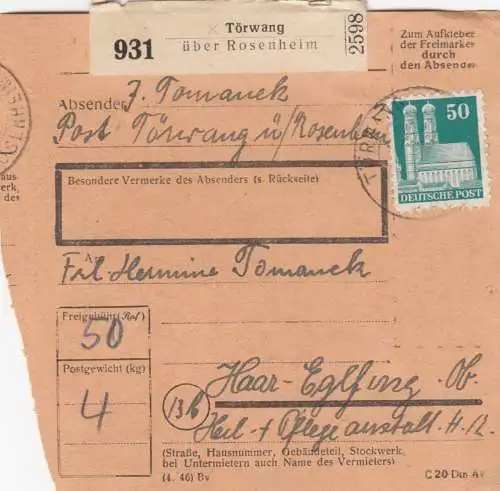 Törwang
931 über Rosenheim
2598
Zum Aufkleben
der Freimarke
durch
den Absende
Absender J. Tomaneck
Post Törwang ü/Rosenheim
50
DEUTSCHE POST
TÖRW
Besondere Vermerke des Absenders (s. Rückseite)
aus
werk,
des
A
Frl. Hermine Tomaneck
Freigebühr (Rpf)
50
Postgewicht (kg)
4
13b
Haar-Eglfing Ob.
Heil + Pflegeanstalt H. 12.
(Straße, Hausnummer, Gebäudeteil, Stockwerk,
bei Untermietern auch Name des Vermieters)
(4. 46) Bv
C 20 Din A